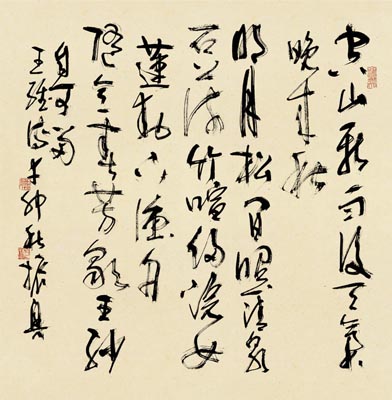 空山新雨後天氣
晚来秋
明月松间照清泉
石上流竹喧归浣女
蓮動下漁舟
随意春芳歇王孙
自可留
王维诗辛卯秋振